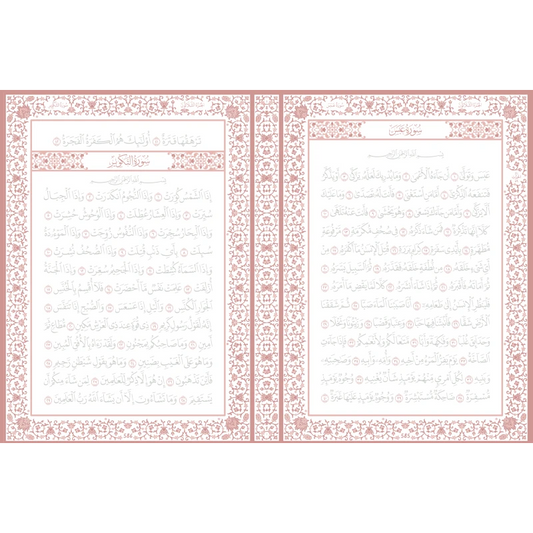 سُورَةُ عَبَسَ
بِسْمِ اللَّهِ الرَّحْمَٰنِ الرَّحِيمِ
عَبَسَ وَتَوَلَّىٰ ١ أَن جَاءَهُ الْأَعْمَىٰ ٢ وَمَا يُدْرِيكَ لَعَلَّهُ يَزَّكَّىٰ ٣ أَوْ يَذَّكَّرُ
فَتَنفَعَهُ الذِّكْرَىٰ ٤ أَمَّا مَنِ اسْتَغْنَىٰ ٥ فَأَنتَ لَهُ تَصَدَّىٰ ٦ وَمَا عَلَيْكَ
أَلَّا يَزَّكَّىٰ ٧ وَأَمَّا مَن جَاءَكَ يَسْعَىٰ ٨ وَهُوَ يَخْشَىٰ ٩ فَأَنتَ عَنْهُ تَلَهَّىٰ ١٠
كَلَّا إِنَّهَا تَذْكِرَةٌ ١١ فَمَن شَاءَ ذَكَرَهُ ١٢ فِي صُحُفٍ مُّكَرَّمَةٍ ١٣ مَّرْفُوعَةٍ
مُّطَهَّرَةٍ ١٤ بِأَيْدِي سَفَرَةٍ ١٥ كِرَامٍ بَرَرَةٍ ١٦ قُتِلَ الْإِنسَانُ مَا أَكْفَرَهُ ١٧ مِنْ
أَيِّ شَيْءٍ خَلَقَهُ ١٨ مِن نُّطْفَةٍ خَلَقَهُ فَقَدَّرَهُ ١٩ ثُمَّ السَّبِيلَ يَسَّرَهُ ٢٠
ثُمَّ أَمَاتَهُ فَأَقْبَرَهُ ٢١ ثُمَّ إِذَا شَاءَ أَنشَرَهُ ٢٢ كَلَّا لَمَّا يَقْضِ مَا أَمَرَهُ ٢٣
فَلْيَنظُرِ الْإِنسَانُ إِلَىٰ طَعَامِهِ ٢٤ أَنَّا صَبَبْنَا الْمَاءَ صَبًّا ٢٥ ثُمَّ شَقَقْنَا
الْأَرْضَ شَقًّا ٢٦ فَأَنبَتْنَا فِيهَا حَبًّا ٢٧ وَعِنَبًا وَقَضْبًا ٢٨ وَزَيْتُونًا وَنَخْلًا ٢٩
وَحَدَائِقَ غُلْبًا ٣٠ وَفَاكِهَةً وَأَبًّا ٣١ مَّتَاعًا لَّكُمْ وَلِأَنْعَامِكُمْ ٣٢ فَإِذَا جَاءَتِ
الصَّاخَّةُ ٣٣ يَوْمَ يَفِرُّ الْمَرْءُ مِنْ أَخِيهِ ٣٤ وَأُمِّهِ وَأَبِيهِ ٣٥ وَصَاحِبَتِهِ
وَبَنِيهِ ٣٦ لِكُلِّ امْرِئٍ مِّنْهُمْ يَوْمَئِذٍ شَأْنٌ يُغْنِيهِ ٣٧ وُجُوهٌ يَوْمَئِذٍ
مُّسْفِرَةٌ ٣٨ ضَاحِكَةٌ مُّسْتَبْشِرَةٌ ٣٩ وَوُجُوهٌ يَوْمَئِذٍ عَلَيْهَا غَبَرَةٌ ٤٠
تَرْهَقُهَا قَتَرَةٌ ٤١ أُولَٰئِكَ هُمُ الْكَفَرَةُ الْفَجَرَةُ ٤٢
سُورَةُ التَّكْوِيرِ
بِسْمِ اللَّهِ الرَّحْمَٰنِ الرَّحِيمِ
إِذَا الشَّمْسُ كُوِّرَتْ ١ وَإِذَا النُّجُومُ انكَدَرَتْ ٢ وَإِذَا الْجِبَالُ
سُيِّرَتْ ٣ وَإِذَا الْعِشَارُ عُطِّلَتْ ٤ وَإِذَا الْوُحُوشُ حُشِرَتْ ٥
وَإِذَا الْبِحَارُ سُجِّرَتْ ٦ وَإِذَا النُّفُوسُ زُوِّجَتْ ٧ وَإِذَا الْمَوْءُودَةُ
سُئِلَتْ ٨ بِأَيِّ ذَنبٍ قُتِلَتْ ٩ وَإِذَا الصُّحُفُ نُشِرَتْ ١٠
وَإِذَا السَّمَاءُ كُشِطَتْ ١١ وَإِذَا الْجَحِيمُ سُعِّرَتْ ١٢ وَإِذَا الْجَنَّةُ
أُزْلِفَتْ ١٣ عَلِمَتْ نَفْسٌ مَّا أَحْضَرَتْ ١٤ فَلَا أُقْسِمُ بِالْخُنَّسِ ١٥
الْجَوَارِ الْكُنَّسِ ١٦ وَاللَّيْلِ إِذَا عَسْعَسَ ١٧ وَالصُّبْحِ إِذَا تَنَفَّسَ ١٨
إِنَّهُ لَقَوْلُ رَسُولٍ كَرِيمٍ ١٩ ذِي قُوَّةٍ عِندَ ذِي الْعَرْشِ مَكِينٍ ٢٠ مُّطَاعٍ ثَمَّ
أَمِينٍ ٢١ وَمَا صَاحِبُكُم بِمَجْنُونٍ ٢٢ وَلَقَدْ رَآهُ بِالْأُفُقِ الْمُبِينِ ٢٣
وَمَا هُوَ عَلَى الْغَيْبِ بِضَنِينٍ ٢٤ وَمَا هُوَ بِقَوْلِ شَيْطَانٍ رَّجِيمٍ ٢٥
فَأَيْنَ تَذْهَبُونَ ٢٦ إِنْ هُوَ إِلَّا ذِكْرٌ لِّلْعَالَمِينَ ٢٧ لِمَن شَاءَ مِنكُمْ أَن
يَسْتَقِيمَ ٢٨ وَمَا تَشَاءُونَ إِلَّا أَن يَشَاءَ اللَّهُ رَبُّ الْعَالَمِينَ ٢٩